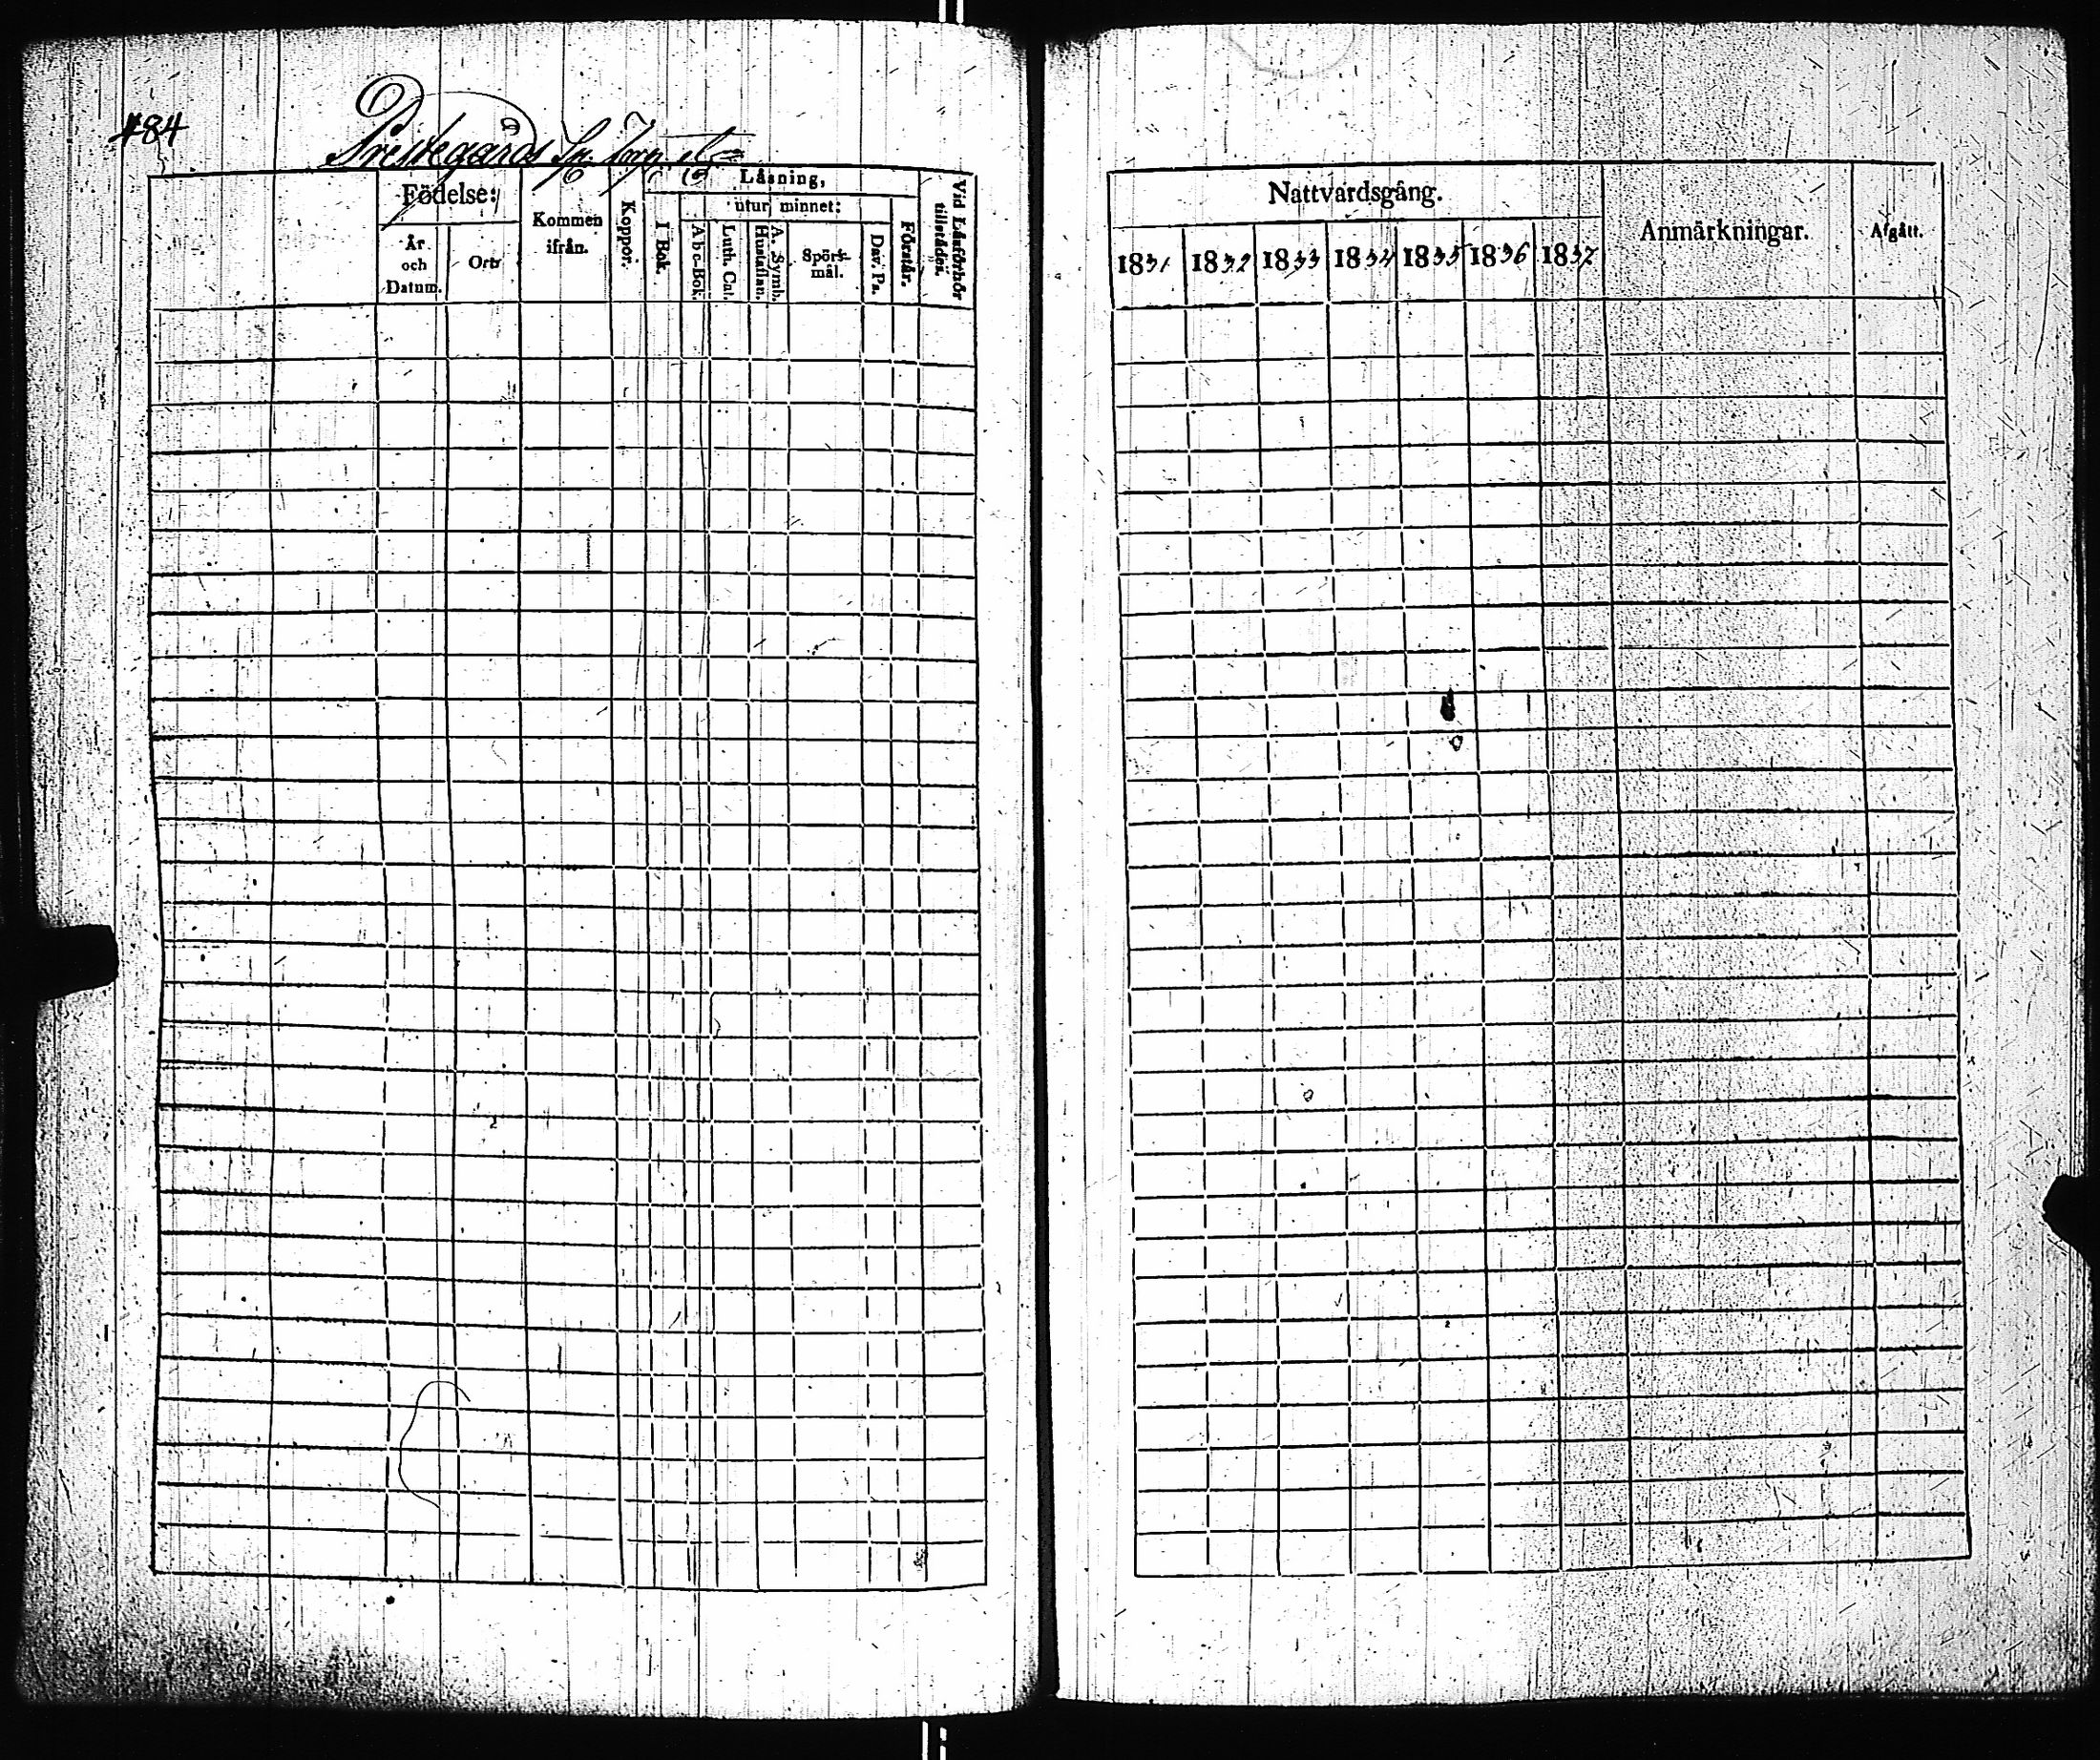 184
Prestegårds
Födelse:
År
och
Datum.
Ort.
Kommen
ifrån.
Koppor.
Läsning,
I Bok.
utur minnet:
Abc-Bok.
Luth. Cat.
A. Symb.
Hustaflan.
Spörs-
mål.
Dav. Ps.
Förstår.
Vid Läsförhör
tillstädes.
Nattvardsgång.
1831 1832 1833 1834 1835 1836 1837
Anmärkningar.
Afgått.